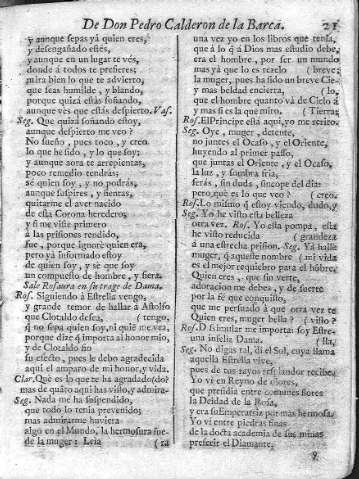 De Don Pedro Calderon de la Barca. 21
y aunque sepas yá quien eres,
y desengañado estés,
y aunque en un lugar te vés,
donde á todos te prefieres;
mira bien lo que te advierto,
que seas humilde, y blando,
porque quizá estás soñando,
aunque vés que estás despierto. Vas.
Seg. Que quizá soñando estoy,
aunque despierto me veo?
No sueño, pues toco, y creo
lo que hè sido, y lo que soy:
y aunque aora te arrepientas,
poco remedio tendrás;
sè quien soy, y no podrás,
aunque suspires, y sientas,
quitarme el aver nacido
de esta Corona heredero,
y si me viste primero
á las prisiones rendido,
fue, porque ignorè quien era,
pero yá informado estoy
de quien soy, y sè que soy
un compuesto de hombre, y fiera.
Sale Rosaura en su trage de Dama.
Ros. Siguiendo á Estrella vengo,
y grande temor de hallar á Astolfo
que Clotaldo desea, (tengo,
que no sepa quien soy, ni que me vea,
porque dize que importa al honor mio,
y de Clotaldo fio
su efecto, pues le debo agradecida
aqui el amparo de mi honor, y vida.
Clar. Què es lo que te ha agradado (do?
mas de quãto aqui has visto, y admira-
Seg. Nada me ha suspendido,
que todo lo tenia prevenido;
mas admirarme huviera
algo en el Mundo, la hermosura fue-
de la muger: Leia (ra
una vez yo en los libros que tenia,
que á lo q̃ á Dios mas estudio debe,
era el hombre, por ser un mundo
mas yá que lo es rezelo (breve;
la muger, pues ha sido un breve Cie-
y mas beldad encierra, (lo,
que el hombre, quanto vá de Cielo á
y mas si es la que miro. (Tierra;
Ros. El Principe está aqui, yo me retiro.
Seg. Oye, muger, detente,
no juntes el Ocaso, y el Oriente,
huyendo al primer passo,
que juntas el Oriente, y el Ocaso,
la luz, y sombra fria,
serás, sin duda, sincope del dia:
pero què es lo que veo? (creo.
Ros. Lo mismo q̃ estoy viendo, dudo, y
Seg. Yo he visto esta belleza
otra vez. Ros. Yo esta pompa, esta
he visto reducida (grandeza
á una estrecha prision. Seg. Yá hallè
muger, q̃ aqueste nombre (mi vida
es el mejor requiebro para el hõbre.
Quien eres, que sin verte,
adoracion me debes, y de suerte
por la fè que conquisto,
que me persuado á que otra vez te
Quien eres, muger bella? (visto?
Ros. Dissimular me importa: soy Estre-
una infelix Dama. (lla,
Seg. No digas tal, di el Sol, cuya llama
aquella Estrella vive,
pues de tus rayos resplandor recibe.
Yo vi en Reyno de olores,
que presidia entre comunes flores
la Deidad de la Rosa,
y era su Emperatriz por mas hermosa.
Yo vi entre piedras finas
de la docta academia de sus minas
preferir el Diamante,